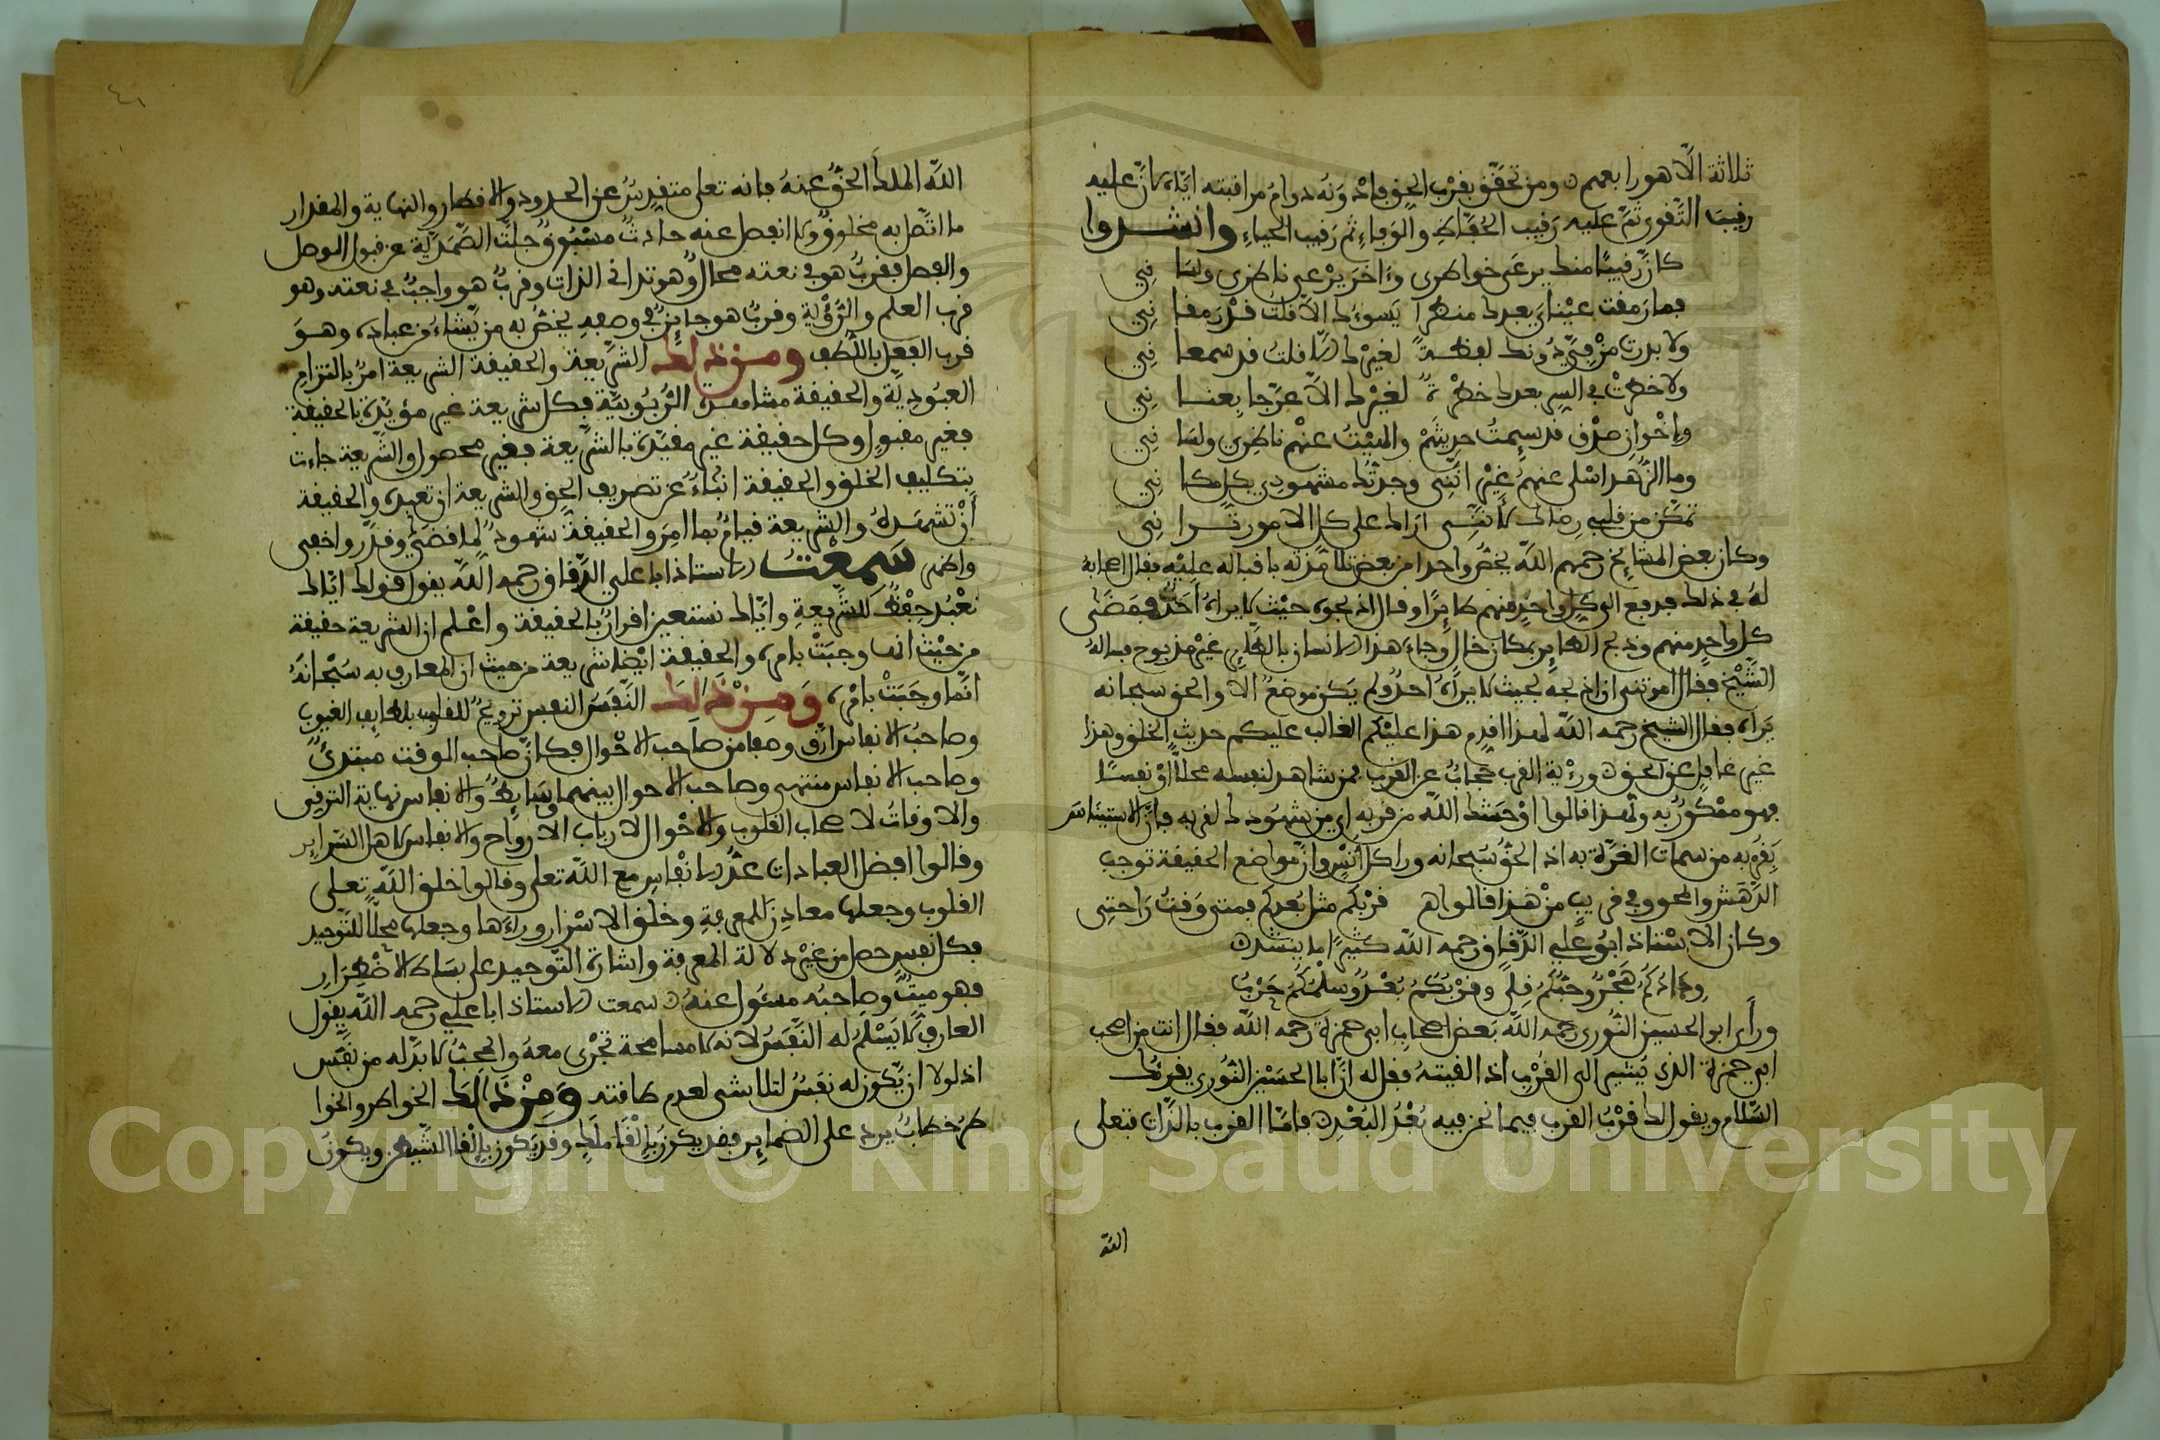 ثلاثة الا هو رابعهم ومن تحقق بقرب الحق فادونه دوام مراقبته اياه لان عليه
رقيب التقوى ثم عليه رقيب الحفاظ والوفاء ثم رقيب الحياء وانشدوا
كان رقيبا منك يرعى خواطري وءاخر يرعى ناظري ولسا ني
فما رمقت عيناي بعدك منظرا يسوءك الا قلت قد رمقا ني
ولا بدرت من في دونك لفظة لغيرك الا قلت قد سمعا ني
ولا خطرت في السر بعدك خطرة لغيرك الا عرجا بعنا ني
واخوان صدق قد سئمت حديثهم وامسيت عنهم ناظري ولسا ني
وما الزهد اسلى عنهم غير انني وجدتك مشهودي بكل مكا ني
تمكن من قلبي رضاك كانني اراك على كل الامور ترا ني
وكان بعض المشايخ رحمهم الله يخص واحدا من بعض تلامذته باقباله عليه فقال اصحابه
له في ذلك فدفع الى كل واحد منهم طايرا وقال اذبحوه حيث لا يراه احد فمضى
كل واحد منهم وذبح الطاير بمكان خال وجاء هذا الانسان بالطاير غير مذبوح فساله
الشيخ فقال امرتني ان اذبحه بحيث لا يراه احد ولم يكن موضع الا والحق سبحانه
يراه فقال الشيخ رحمه الله لهذا اقدم هذا عليكم الغالب عليكم حديث الخلق وهذا
غير غافل عن الحق ورءية القرب حجاب عن القرب فمن شاهد لنفسه محلا او نفسا
فهو ممكور به ولهذا قالوا اوحشك الله من قربه اي من شهودك لقربه فان الاستيناس
بقربه من سمات الغرة به اذ الحق سبحانه وراء كل انس وان مواضع الحقيقة توجب
الدهش والمحو وفي قريب من هذا قالوا قربكم مثل بعدكم فمتى وقت راحتي
وكان الاستاذ ابو علي الدقاق رحمه الله كثيرا ما ينشد
ودادكم هجر وحبكم قلى وقربكم بعد وسلمكم حرب
ورأى ابو الحسين النوري رحمه الله بعض اصحاب ابي حمزة رحمه الله فقال انت من اصحاب
ابي حمزة الذي يشير الى القرب اذا لقيته فقل له ان ابا الحسين النوري يقرئك
السلام ويقول لك قرب القرب فيما نحن فيه بعد البعد فاما القرب بالذات فتعلى
الله
الله الملك الحق عنه فانه تعلى متقدس عن الحدود والاقطار والنهاية والمقدار
ما اتصل به مخلوق ولا انفصل عنه حادث مسبوق جلت الصمدية عن قبول الوصل
والفصل فقرب هو في نعته محال وهو تداني الذات وقرب هو واجب في نعته وهو
قرب العلم والرؤية وقرب هو جايز في وصفه يخص به من يشاء من عباده وهو
قرب الفعل باللطف ومن ذلك الشريعة والحقيقة الشريعة امر بالتزام
العبودية والحقيقة مشاهدة الربوبية فكل شريعة غير مؤيدة بالحقيقة
فغير مقبول وكل حقيقة غير مقيدة بالشريعة فغير محصول والشريعة جاءت
بتكليف الخلق والحقيقة انباء عن تصريف الحق والشريعة ان تعبده والحقيقة
أن تشهده والشريعة قيام بما امر والحقيقة شهود لما قضى وقدر واخفى
واظهر سمعت الاستاذ ابا علي الدقاق رحمه الله يقول قولك اياك
نعبد حفظ للشريعة واياك نستعين اقرار بالحقيقة واعلم ان الشريعة حقيقة
من حيث انها وجبت بامره والحقيقة ايضا شريعة من حيث ان المعارف به سبحانه
انما وجبت بامره ومن ذلك النفس النفس ترويح للقلوب بلطايف الغيوب
وصاحب الانفاس ارق وصفا من صاحب الاحوال فكان صاحب الوقت مبتدئ
وصاحب الانفاس منتهى وصاحب الاحوال بينهما وسايط والانفاس نهاية الترقي
والاوقات لاصحاب القلوب والاحوال لارباب الارواح والانفاس لاهل السراير
وقالوا افضل العبادات عد الانفاس مع الله تعلى وقالوا خلق الله تعلى
القلوب وجعلها معادن للمعرفة وخلق الاسرار وراءها وجعلها محلا للتوحيد
فكل نفس حصل من غير دلالة المعرفة واشارة التوحيد على بساط الاضطرار
فهو ميت وصاحبه مسئول عنه سمعت الاستاذ ابا علي رحمه الله يقول
العارف لا يسلم له النفس لانه لا مسامحة تجرى معه والمحب لا بد له من نفس
اذ لولا ان يكون له نفس لتلاشى لعدم طاقته ومن ذلك الخواطر والخوا
طر خطاب يرد على الضماير فقد يكون بالقاء ملك وقد يكون بالقاء الشيطن ويكون